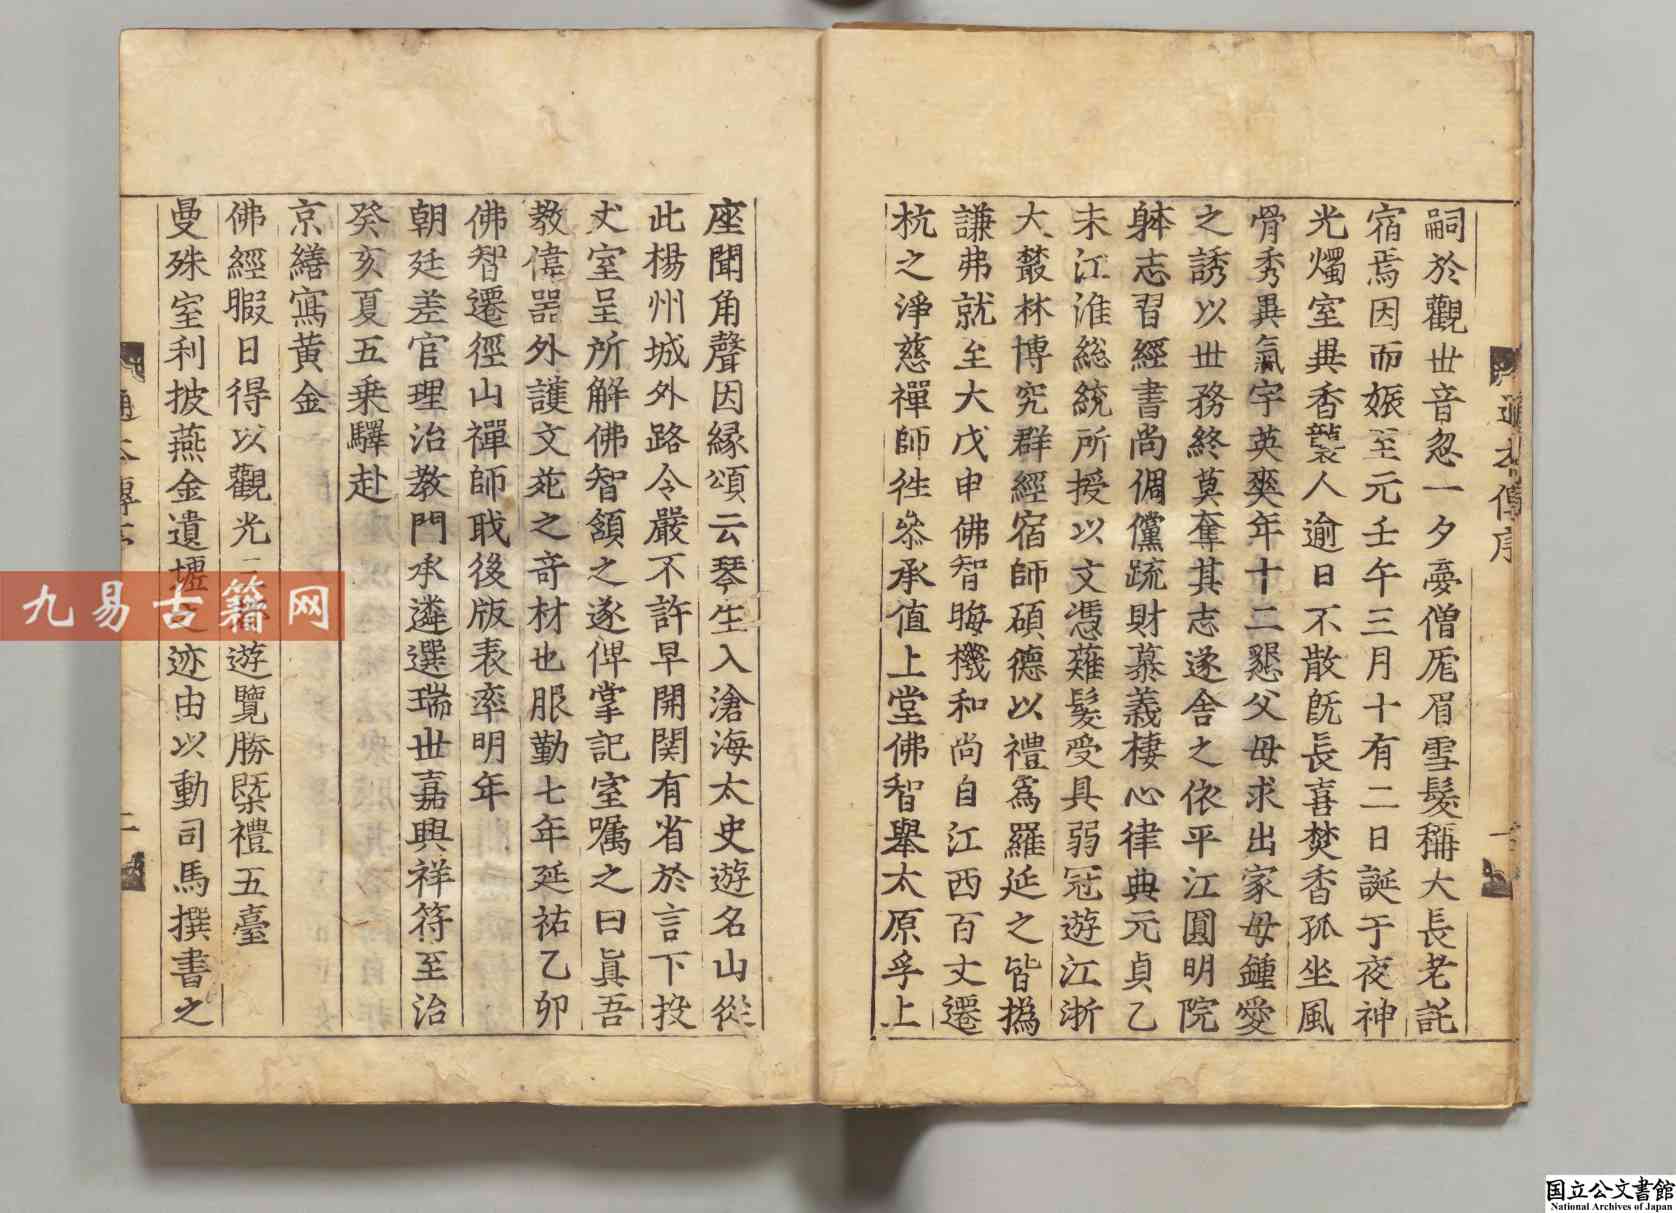 嗣於觀世音忽一夕夢僧厖眉雪髮稱大長老託
宿焉因而娠至元壬午三月十有二日誕于夜神
光燭室異香襲人逾日不散旣長喜焚香孤坐風
骨秀異氣宇英爽年十二懇父母求出家母鍾愛
之誘以世務終莫奪其志遂舍之依平江圓明院
躰志習經書尚倜儻疏財慕義棲心律典元貞乙
未江淮総統所授以文憑薙髮受具弱冠遊江浙
大叢林博究群經宿師碩德以禮爲羅延之皆撝
謙弗就至大戊申佛智晦機和尚自江西百丈遷
杭之淨慈禪師徃叅承值上堂佛智舉太原孚上
座聞角聲因縁頌云琴生入滄海太史遊名山從
此楊州城外路令嚴不許早開関有省於言下投
丈室呈所解佛智頷之遂俾掌記室嘱之曰眞吾
教偉器外護文苑之竒材也服勤七年延祐乙卯
佛智遷徑山禪師職後版表率明年
朝廷差官理治教門承遴選瑞世嘉興祥符至治
癸亥夏五乗驛赴
京繕寫黃金
佛經暇日得以觀光三
遊覽勝槩禮五臺
曼殊室利披燕金遺墟之迹由以動司馬撰書之
通本傳序
九易古籍网
国立公文書館
National Archives of Japan